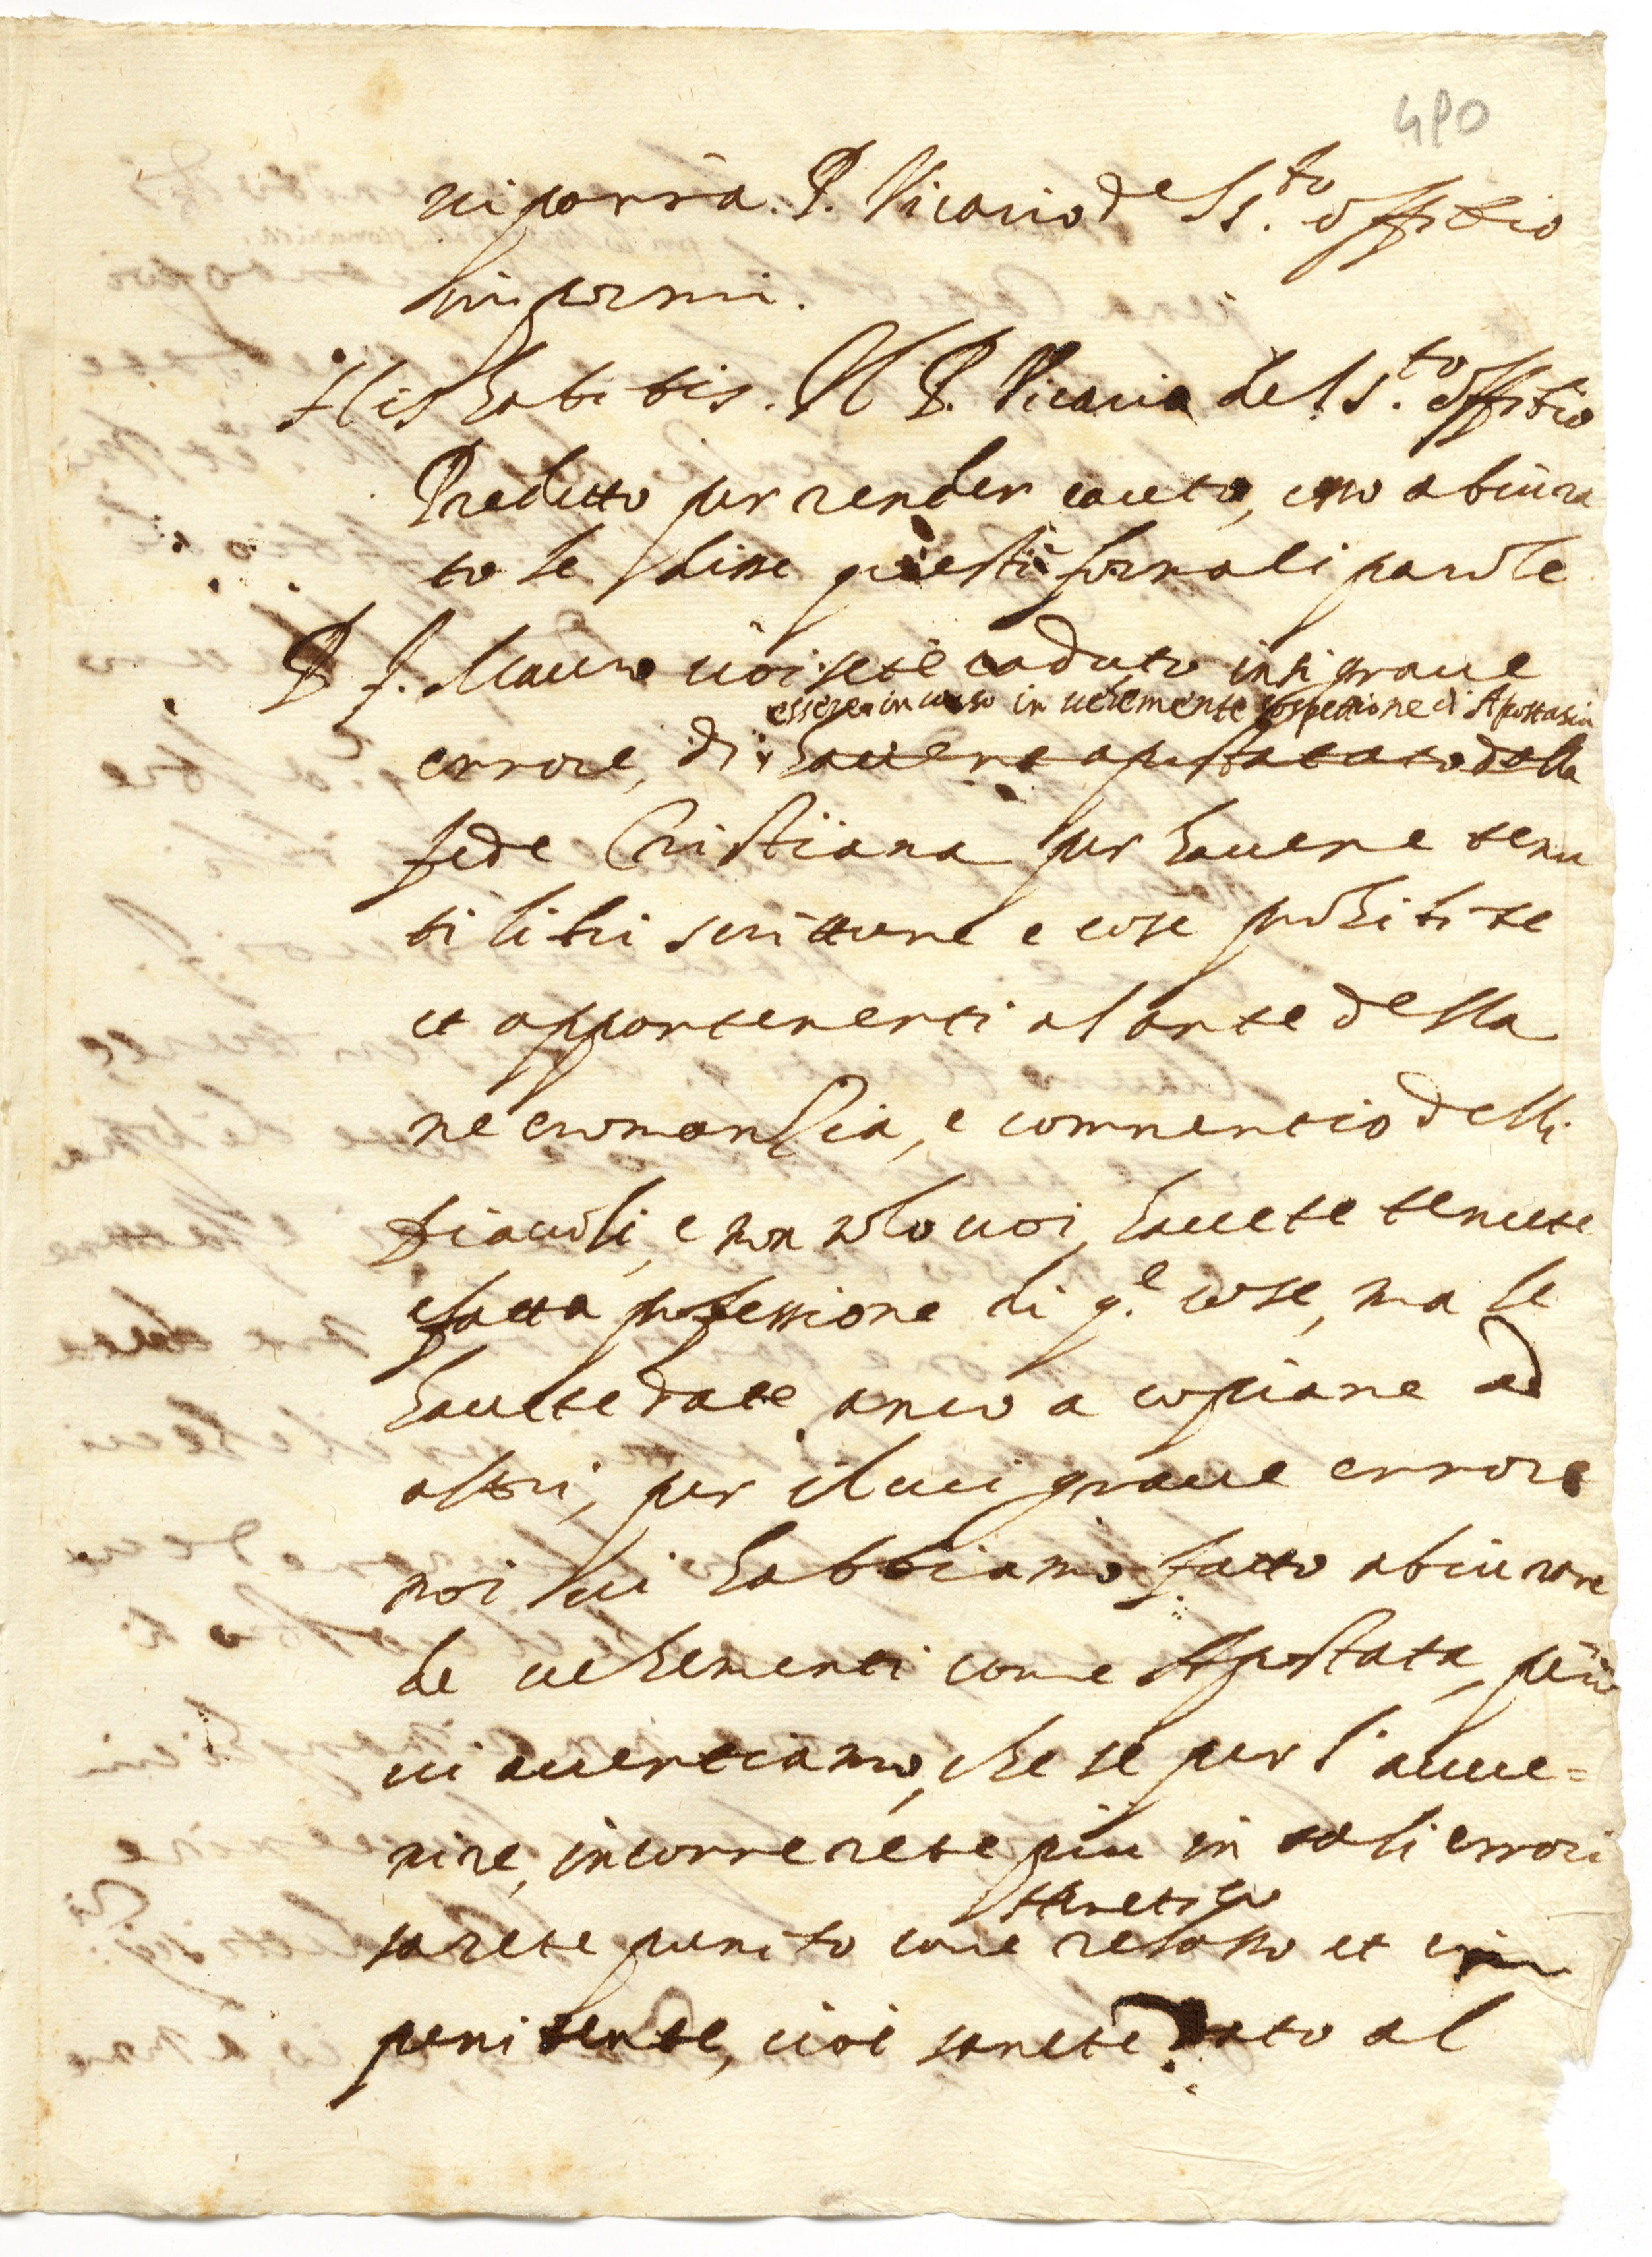 490
ui porrà. P. Vicario del S.to offitio
impormi.
His habitis. Il P. Vicario del S.to offitio
Predetto per render cauto, esso abiura
to le disse queste formali parole
P. f. Mauro uoi sete caduto in si graue
essere incorso in uehemente sospettione di Apostasia
errore, di hauere apostatato dalla
fede Cristiana per hauere tenu
ti libri scritture e cose prohibite
et appartenenti al arte della
necromanzia, e commertio delli
Diauoli, e non solo uoi hauete tenute
e fatta professione di q.e cose, ma le
hauete date anco a copiare ad
altri, per il cui graue errore
noi ui habbiamo fatto abiurare
de uehementi come Apostata, però
ui auertiamo, che se per l'auue=
nire, incorrerete piu in tali errori
Heretico
sarete punito come relasso et im
penitente, cioè sarete dato al